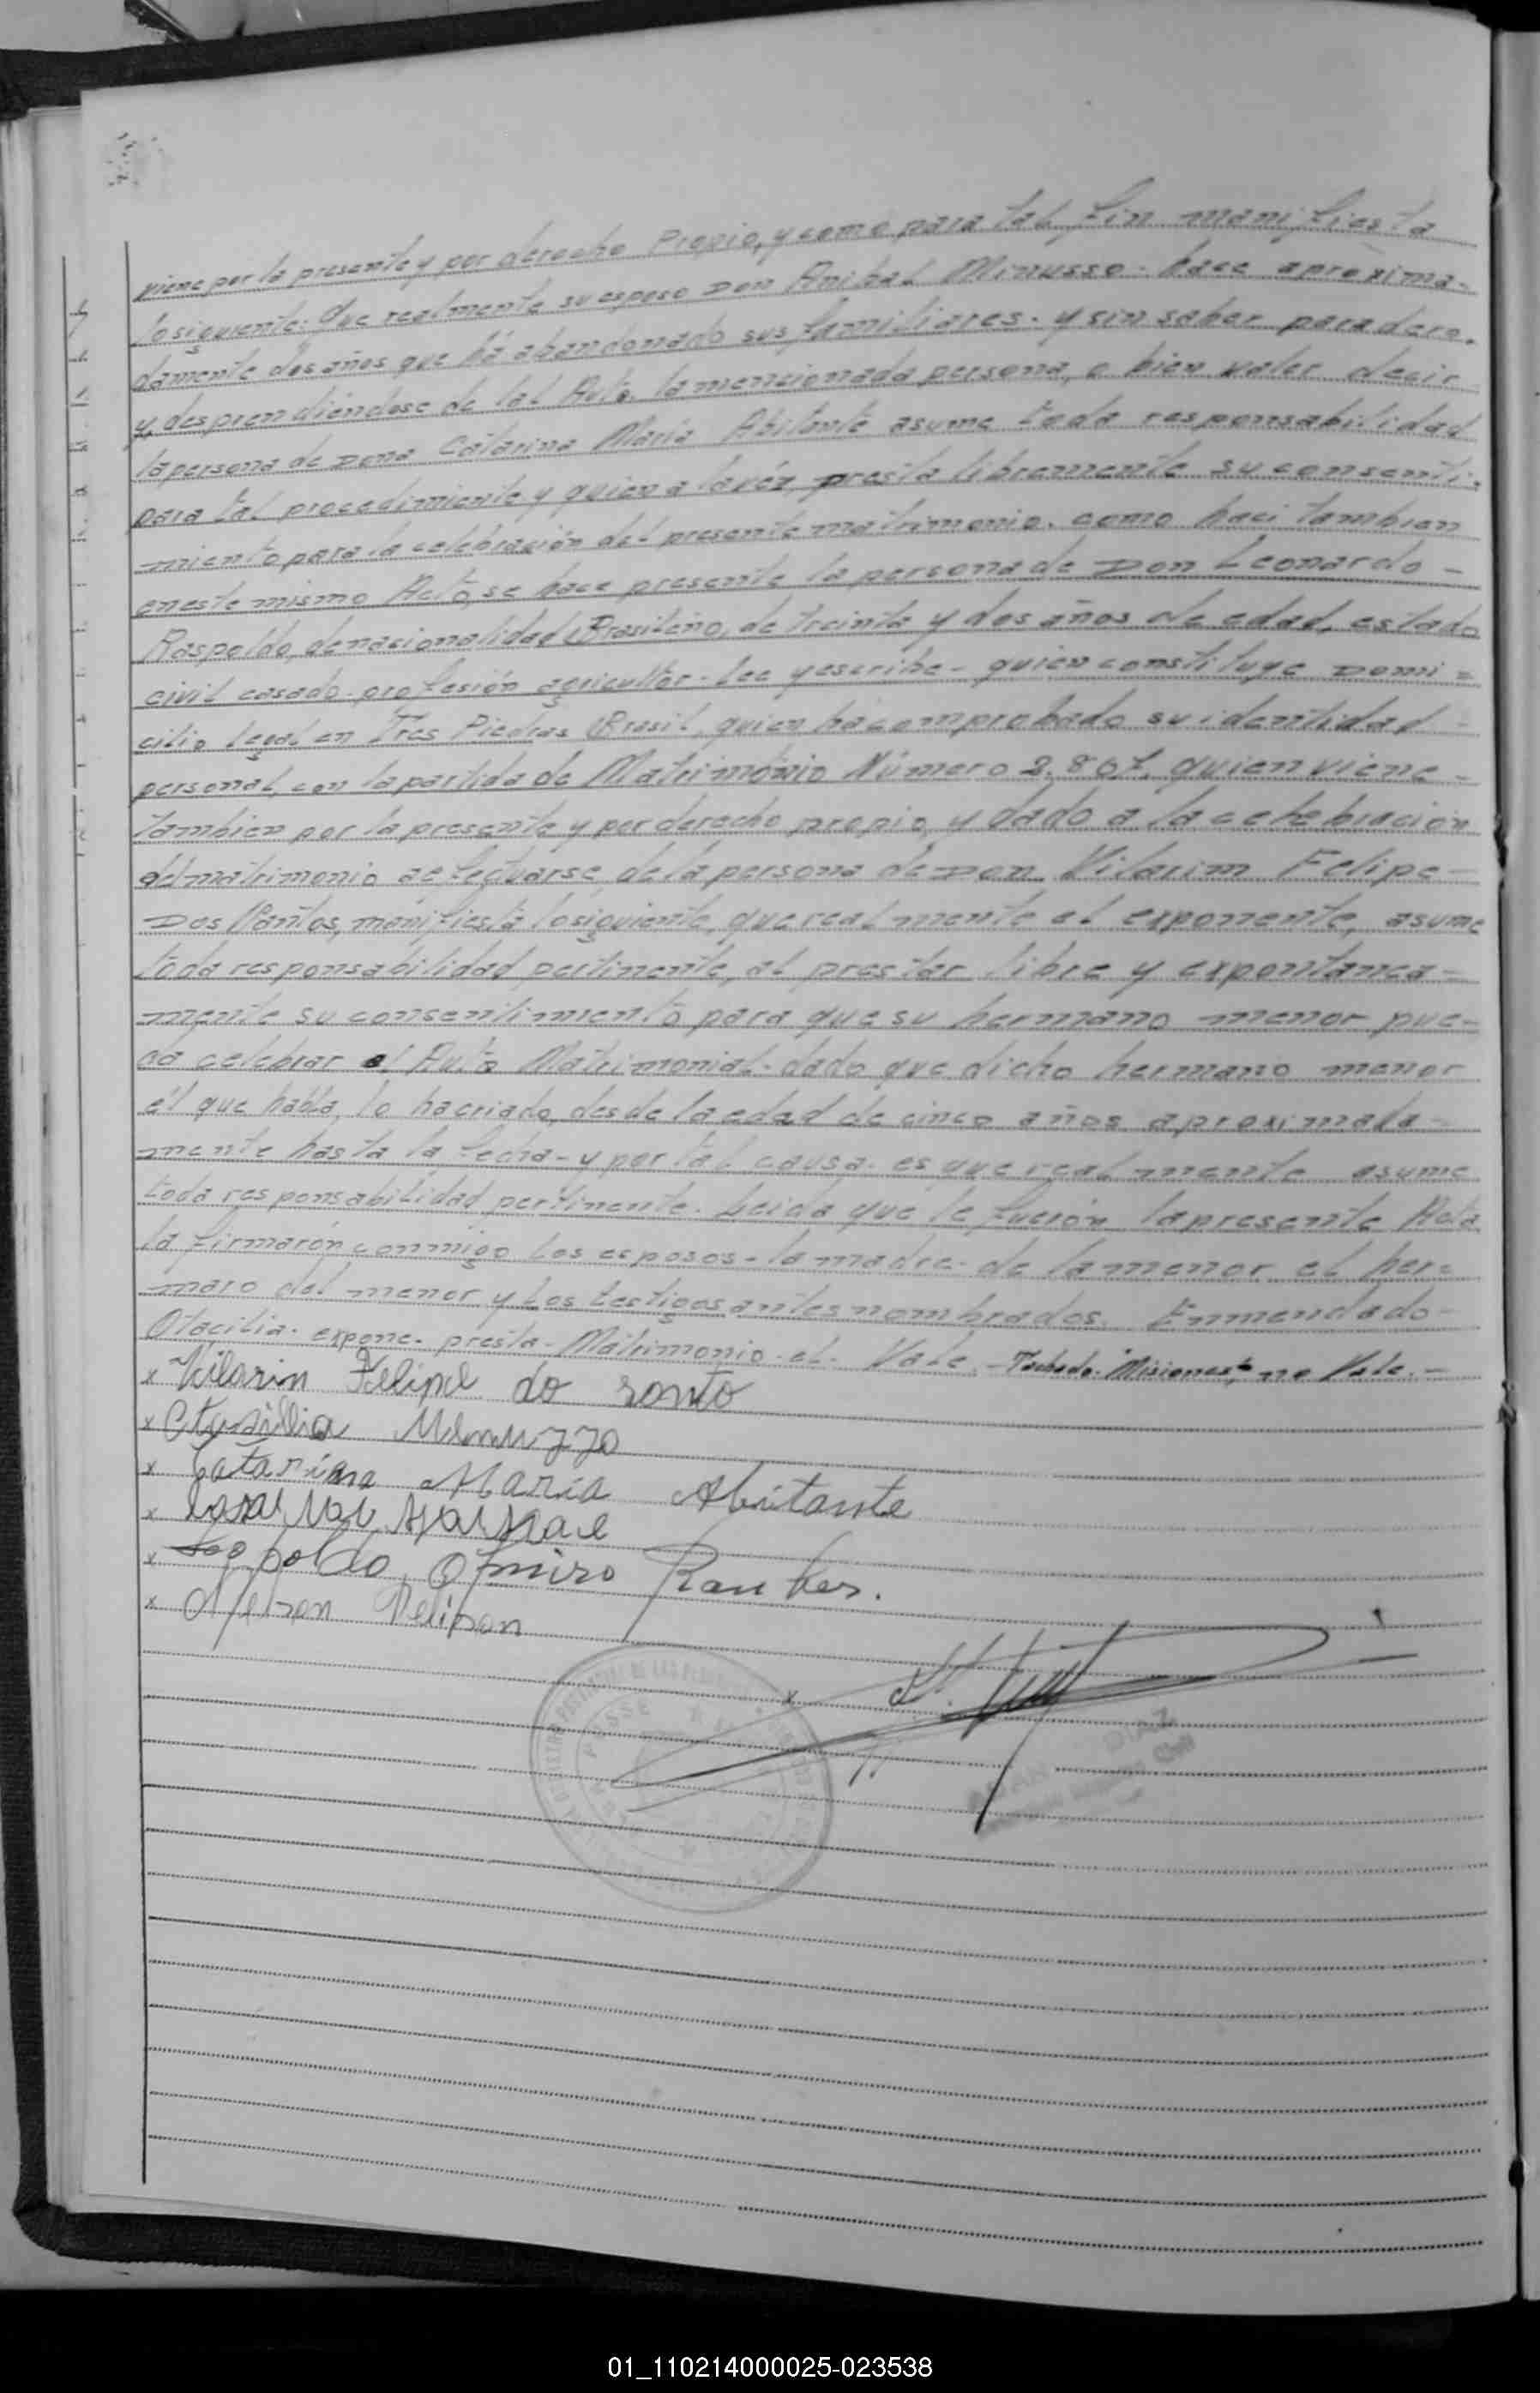 viene por la presente y por derecho Propio, y como para tal fin manifiesta
lo siguiente: Que realmente su esposo Don Anibal Minusso - hace aproxima-
damente dos años que há abandonado sus familiares - y sin saber paradero.
y desprendiéndose de tal Auto. la mencionada persona, o bien valer decir
la persona de Dona Catarina María Abitante asume toda responsabilidad
para tal procedimiento y quien a la véz presta libremente su consenti-
miento para la celebración del presente matrimonio. como haci tambien
en este mismo Acto, se hace presente la persona de Don Leonardo -
Raspoldo, de nacionalidad Brasileño, de treinta y dos años de edad, estado
civil casado - profesión agricultor - lee y escribe - quien constituye Domi =
cilio legal en Tres Piedras Brasil, quien há comprobado su identidad -
personal, con la partida de Matrimónio Número 2.807. quien viene -
tambien por la presente y por derecho propio, y dado a la celebración
del matrimonio aefectuarse, de la persona de Don Vilarim Felipe -
Dos Santos, manifiesta lo siguiente, que realmente el exponente, asume
toda responsabilidad pertinente, al prestar libre y expontanea -
mente su consentimiento para que su hermano menor pue-
da celebrar el Auto Matrimonial - dado que dicho hermano menor
él que habla, lo hacriado, desde la edad de cinco años aproximada -
mente hasta la fecha - y por tal causa - es que realmente asume
toda responsabilidad pertinente. Leida que le fuerón la presente Acta
la firmarón conmigo los esposos - la madre - de la menor el her=
mano del menor y los testigos antes nombrados. Enmendado -
Otacilia - expone - presta - Matrimonio - el - Vale. - Tachado - "Misiones" no Vale. -
x Vilarin Felipe do santo
x Otasilia Menuzzo
x Catarina María Abitante
x
x Leopoldo Ofmiro Rauber.
x Nelson Delipon
x
DIAZ
01_110214000025-023538